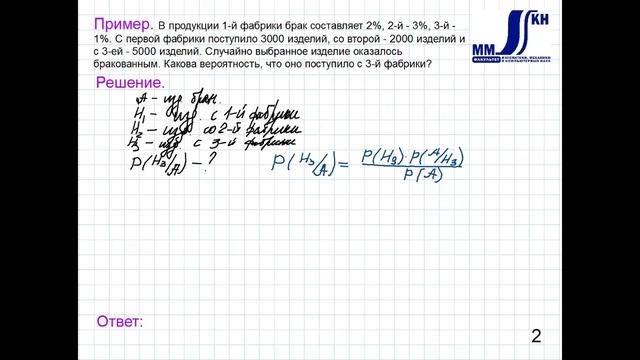 Пример. В продукции 1-й фабрики брак составляет 2%, 2-й - 3%, 3-й -
1%. С первой фабрики поступило 3000 изделий, со второй - 2000 изделий и
с 3-ей - 5000 изделий. Случайно выбранное изделие оказалось
бракованным. Какова вероятность, что оно поступило с 3-й фабрики?
ММ КН
ФАКУЛЬТЕТ МАТЕМАТИКИ, МЕХАНИКИ
И КОМПЬЮТЕРНЫХ НАУК
Решение.
A – изд. брак.
H₁ – изд. с 1-й фабрики
H₂ – изд. со 2-й фабрики
H₃ – изд. с 3-й фабрики
P(H₃/A) – ? P(H₃/A) = P(H₃)·P(A/H₃)
P(A)
Ответ:
2